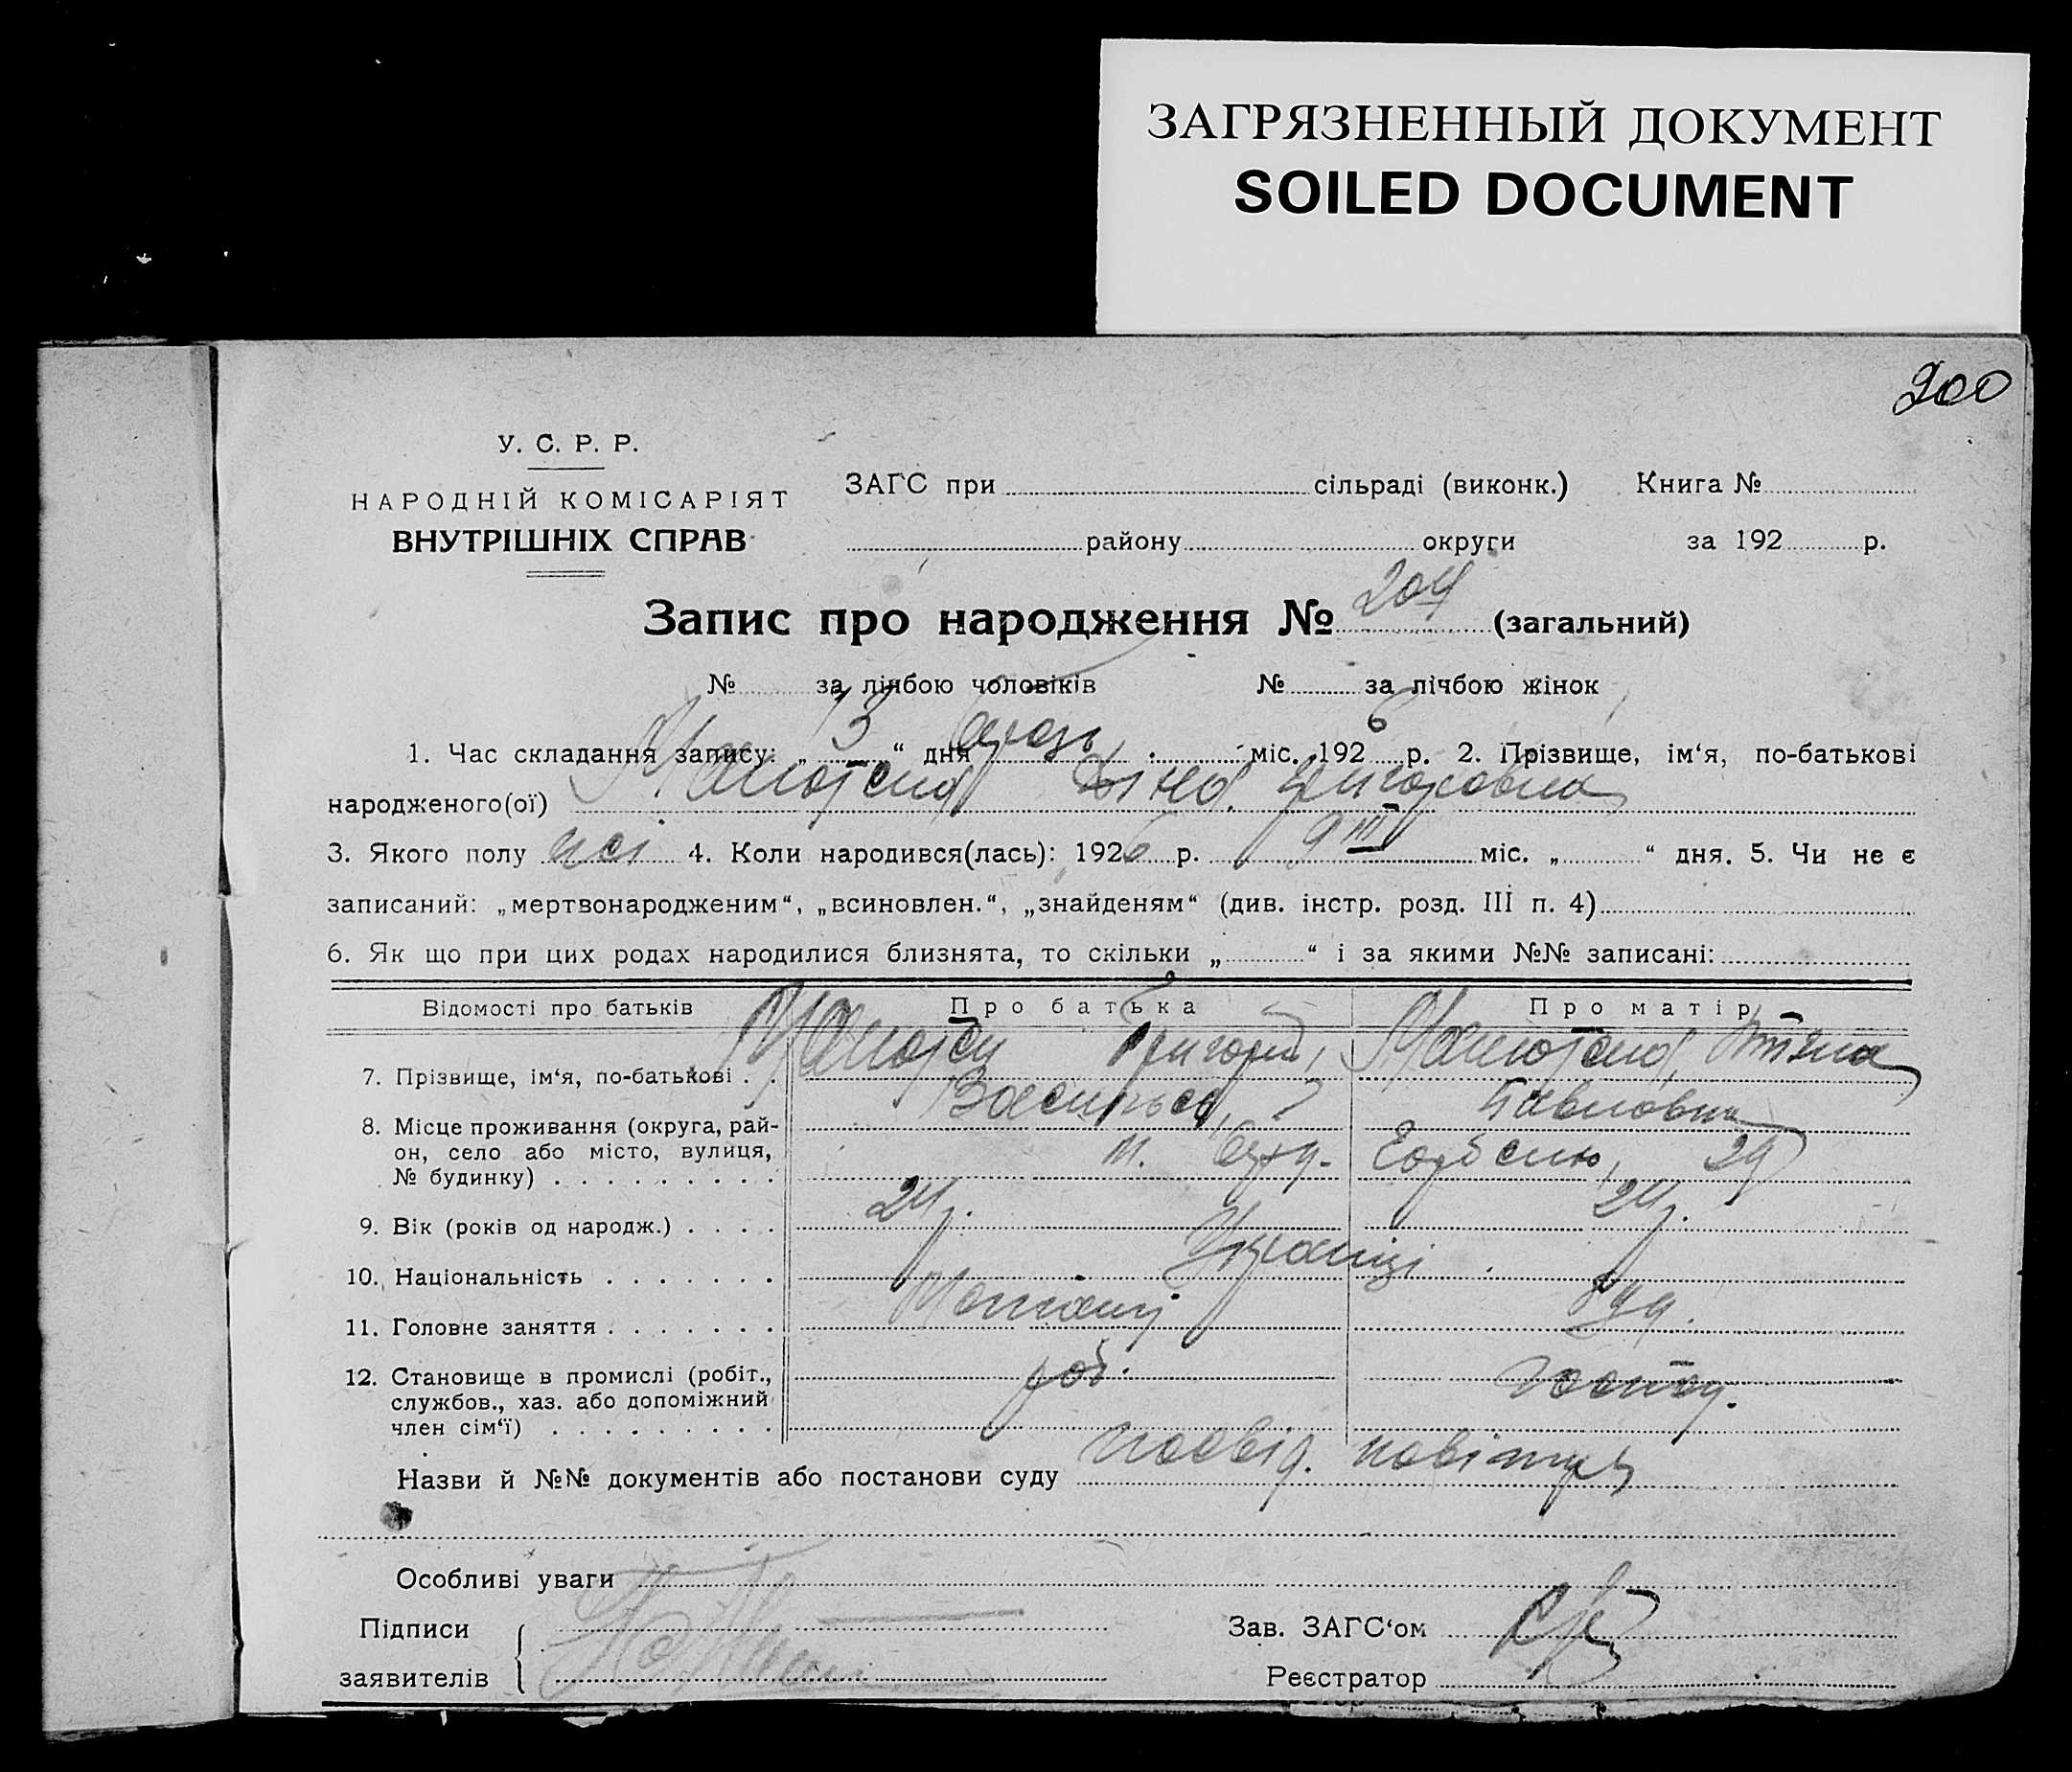 ЗАГРЯЗНЕННЫЙ ДОКУМЕНТ
SOILED DOCUMENT
200
У. С. Р. Р.
НАРОДНІЙ КОМІСАРІЯТ
ВНУТРІШНІХ СПРАВ
ЗАГС при сільраді (виконк.) Книга №
району округи за 192 р.
Запис про народження № 204 (загальний)
№ за лічбою чоловіків № за лічбою жінок
1. Час складання запису: „ 13 “ дня міс. 1926 р. 2. Прізвище, ім‘я, по-батькові
народженого(ої) Григоровна
3. Якого полу жін 4. Коли народився(лась): 1926 р. 9 III міс. „ “ дня. 5. Чи не є
записаний: „мертвонародженим“, „всиновлен.“, „знайденям“ (див. інстр. розд. III п. 4)
6. Як що при цих родах народилися близнята, то скільки „ “ і за якими №№ записані:
Відомості про батьків Про батька Про матір
7. Прізвище, ім‘я, по-батькові . . Григорій,
Павловна
8. Місце проживання (округа, рай-
он, село або місто, вулиця, м. 29
№ будинку) . . . . . . . . .
9. Вік (років од народж.) . . . . 24 р. 24 р.
10. Національність . . . . . . . Українці
11. Головне заняття . . . . . . .
12. Становище в промислі (робіт., роб. господ.
службов., хаз. або допоміжний
член сім‘ї) . . . . . . . . .
Назви й №№ документів або постанови суду посвід. повітух
Особливі уваги
Підписи Зав. ЗАГС‘ом
заявителів Реєстратор